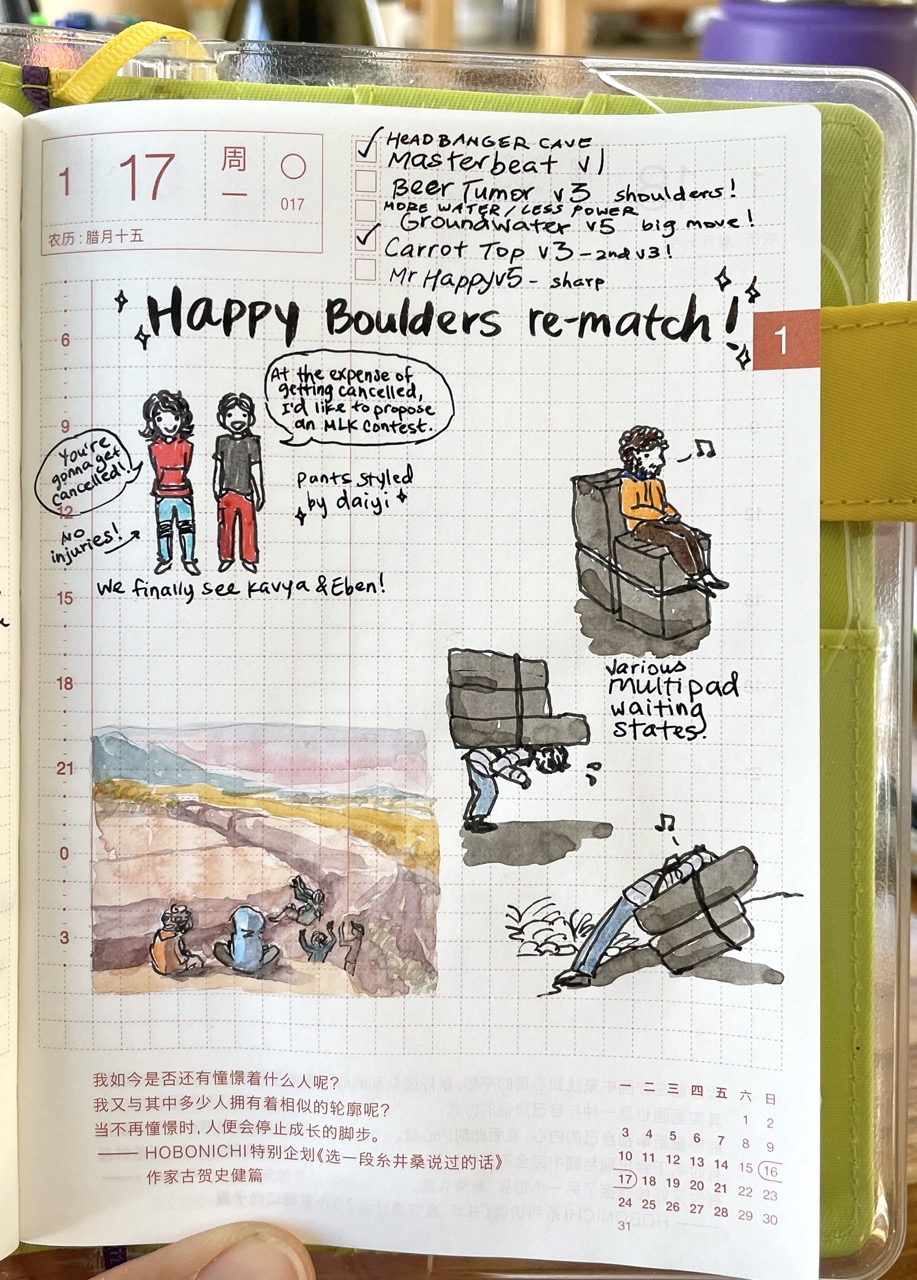 1 17 周一 〇
017
农历：腊月十五
HEADBANGER CAVE
Masterbeat v1
Beer Tumor v3 shoulders!
MORE WATER/LESS POWER
Groundwater v5 big move!
Carrot Top v3 - 2nd v3!
Mr Happy v5 - sharp
Happy Boulders re-match!
1
At the expense of
getting cancelled,
I'd like to propose
an MLK contest.
You're
gonna get
cancelled!
Pants styled
by daiyi
NO
injuries!
We finally see Kavya & Eben!
various
multipad
waiting
states.
6
9
12
15
18
21
0
3
我如今是否还有憧憬着什么人呢？
我又与其中多少人拥有着相似的轮廓呢？
当不再憧憬时，人便会停止成长的脚步。
—— HOBONICHI特别企划《选一段糸井桑说过的话》
作家古贺史健篇
一 二 三 四 五 六 日
1 2
3 4 5 6 7 8 9
10 11 12 13 14 15 16
17 18 19 20 21 22 23
24 25 26 27 28 29 30
31